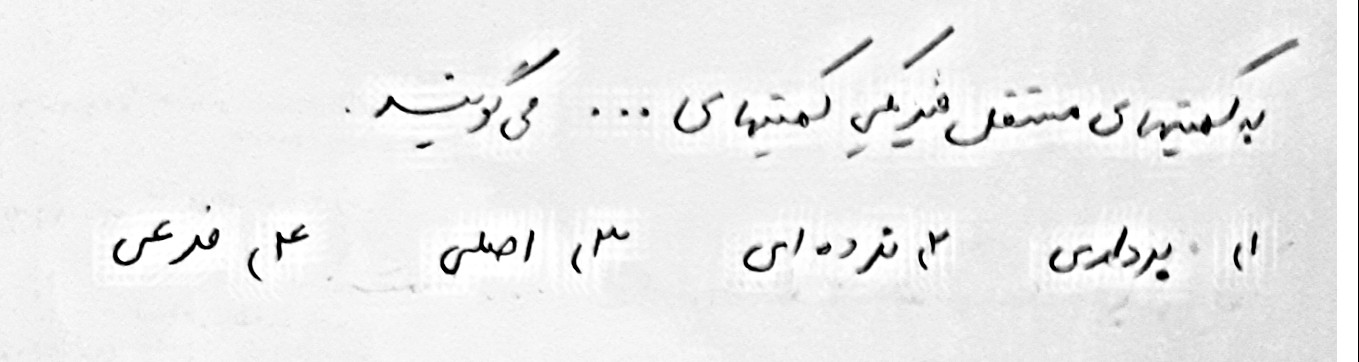 به کمیتهای مستقل فیزیکی کمیتهای ... می گویند.
۱) برداری ۲) نرده ای ۳) اصلی ۴) فرعی